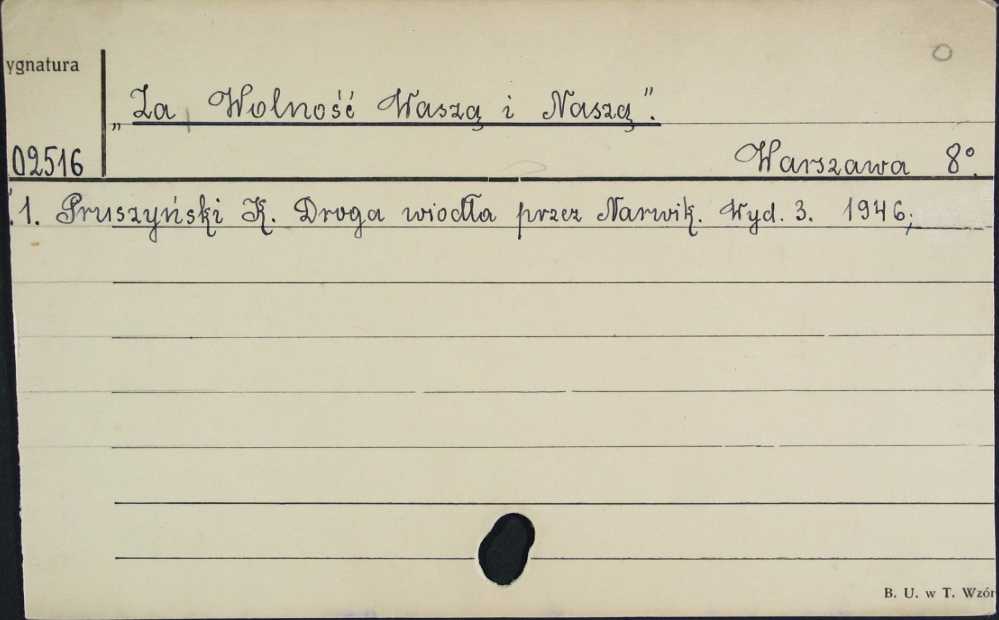 ygnatura
„Za Wolność Waszą i Naszą".
02516
Warszawa 8°.
1. Pruszyński K. Droga wiodła przez Narwik. Wyd. 3. 1946;
B. U. w T. Wzór